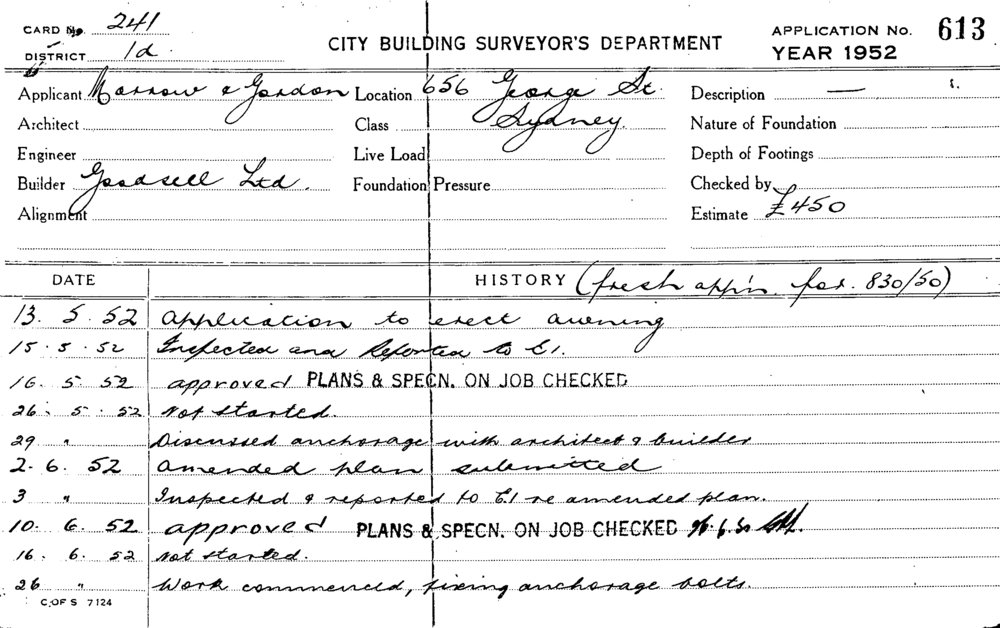 CARD No. 241
DISTRICT 1d
CITY BUILDING SURVEYOR'S DEPARTMENT
APPLICATION No. 613
YEAR 1952
Applicant Morrow & Gordon Location 656 George St. Description —
Architect Class Sydney. Nature of Foundation
Engineer Live Load Depth of Footings
Builder Goodsell Ltd. Foundation Pressure Checked by
Alignment Estimate £450
DATE HISTORY (fresh app'n. for. 830/50)
13. 5. 52 Application to erect awning
15. 5. 52 Inspected and Reported to E1.
16. 5. 52 approved PLANS & SPECN. ON JOB CHECKED
26. 5. 52 Not started.
29 " Discussed anchorage with architect & builder
2. 6. 52 Amended plan submitted
3 " Inspected & reported to E1 re amended plan.
10. 6. 52 approved PLANS & SPECN. ON JOB CHECKED
16. 6. 52 Not started.
26 " Work commenced, fixing anchorage bolts.
C. OF S 7124